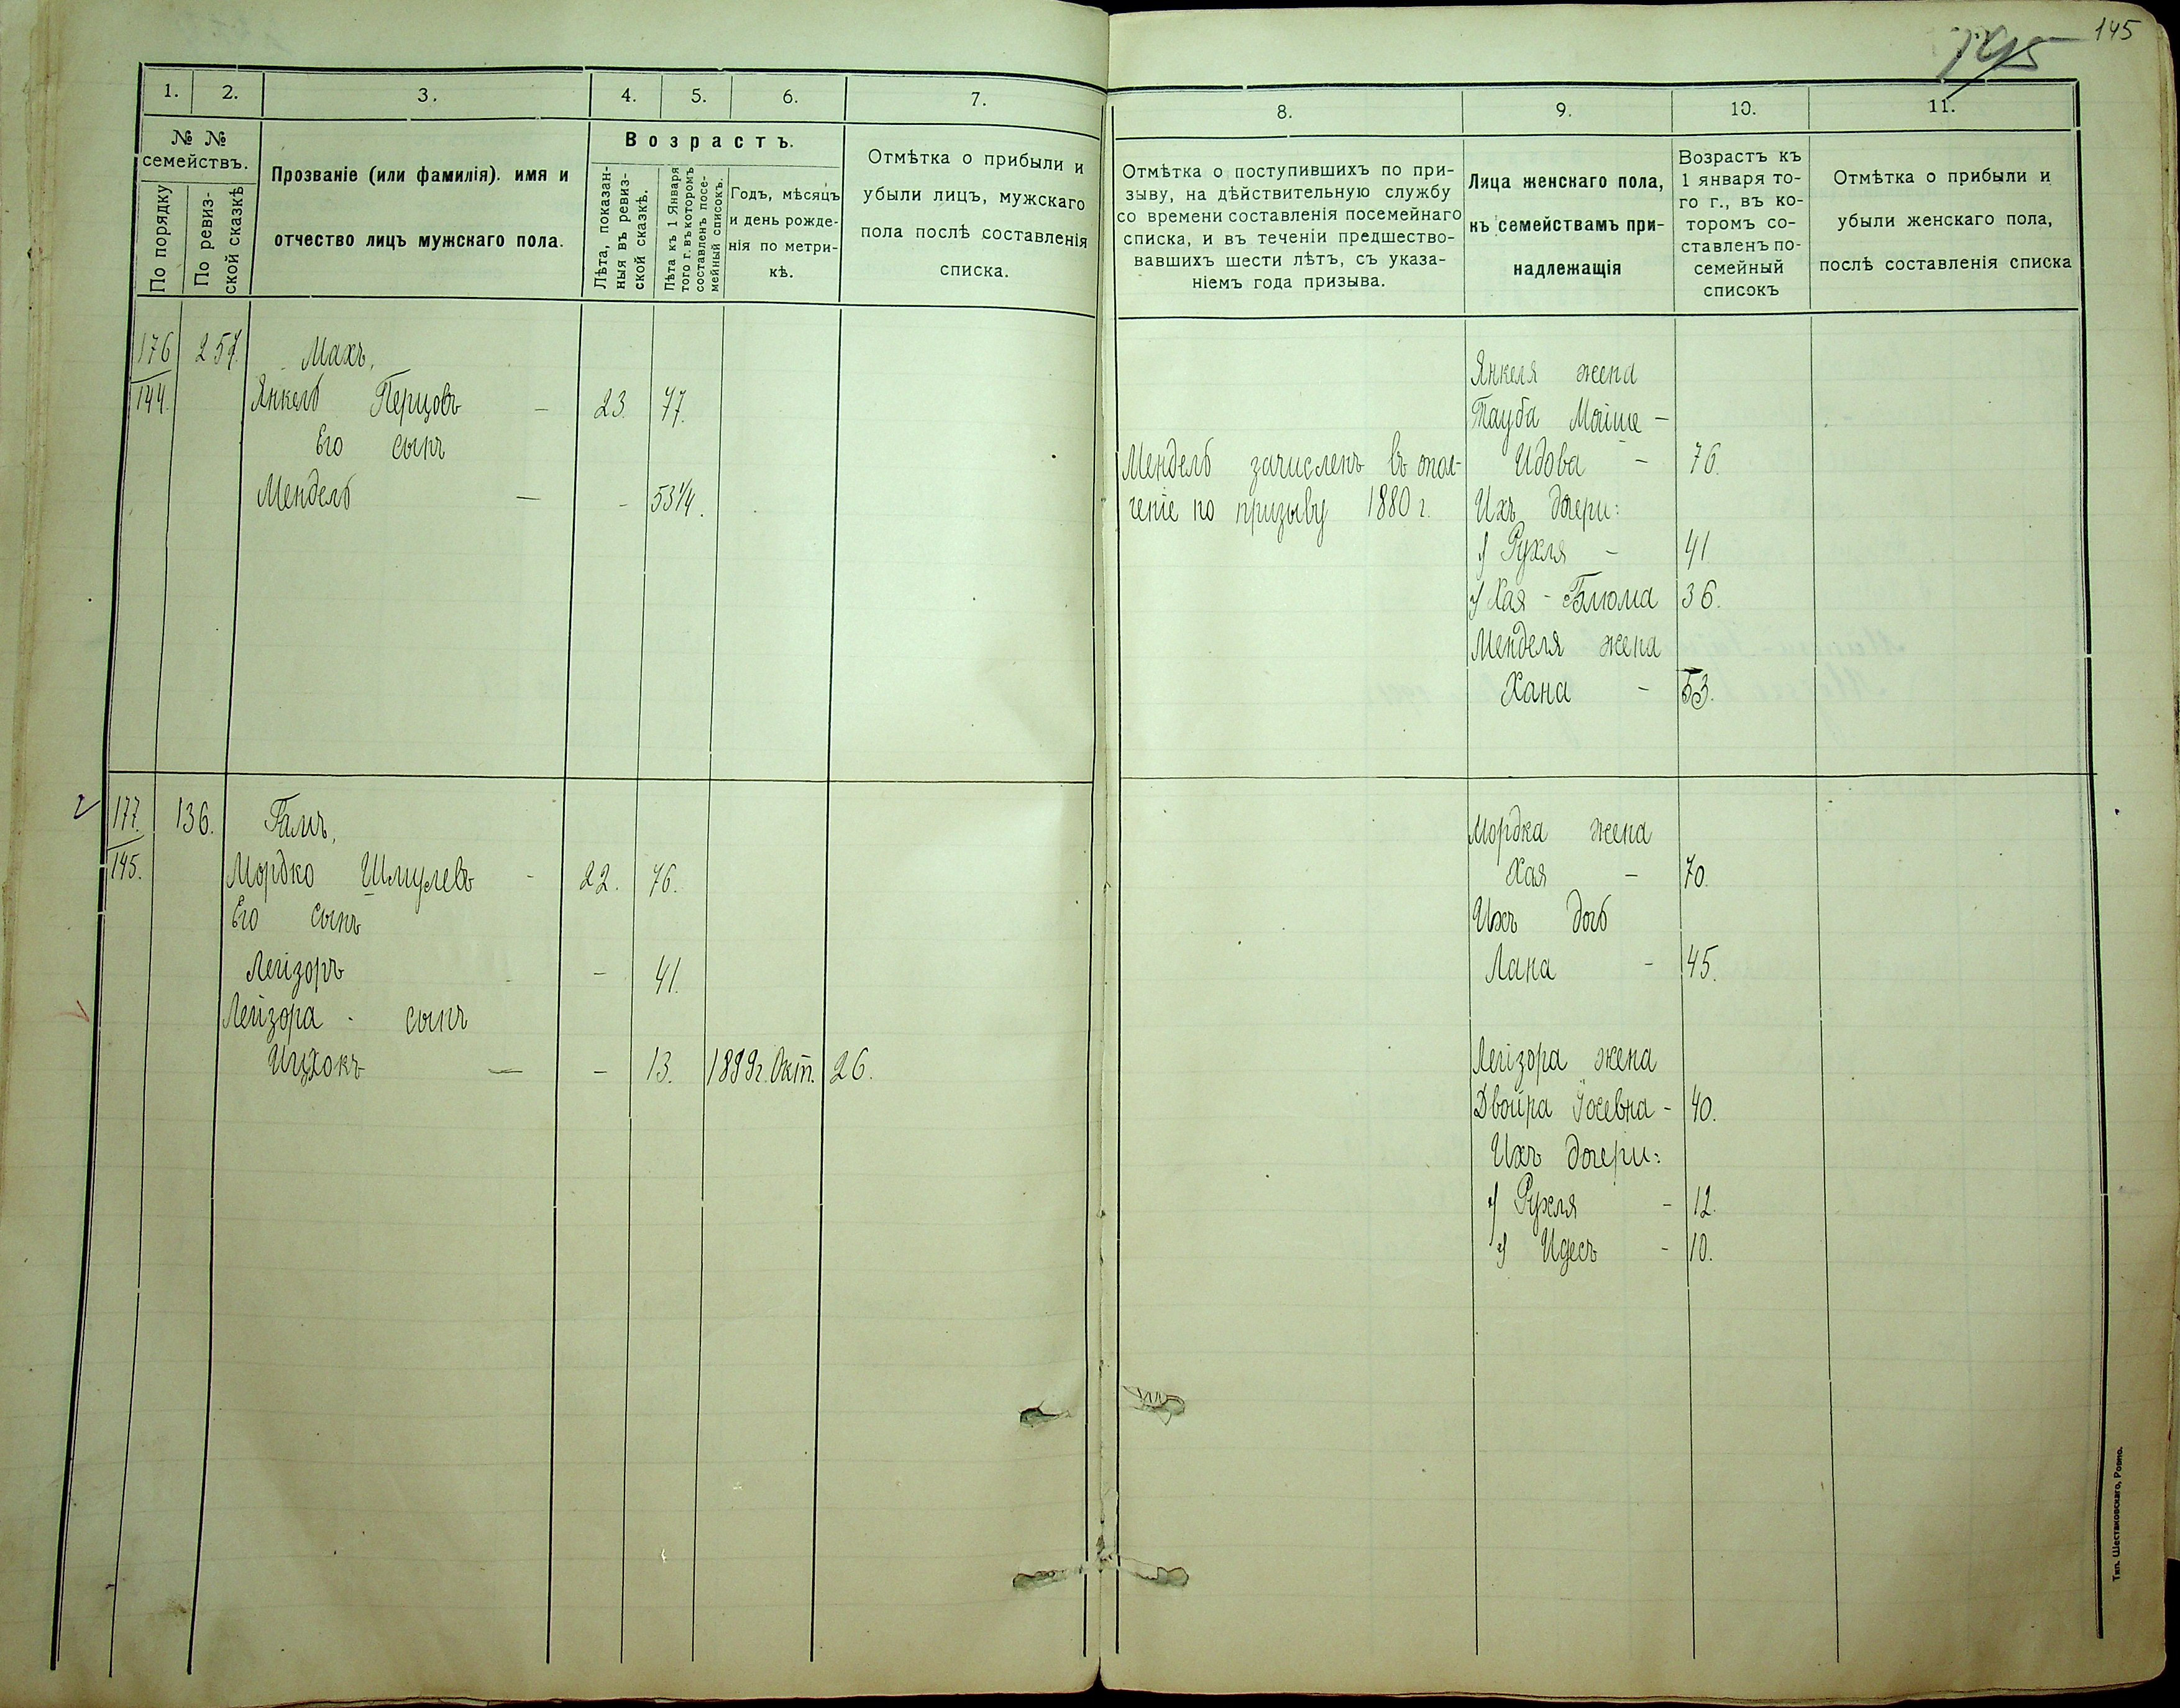 145
145
1. 2. 3. 4. 5. 6. 7.
№ № семействъ.
По порядку
По ревизской сказкѣ
Прозваніе (или фамилія). имя и
отчество лицъ мужскаго пола.
Возрастъ.
Лѣта, показанныя въ ревизской сказкѣ.
Лѣта къ 1 Января того г. въ которомъ составленъ посемейный списокъ.
Годъ, мѣсяцъ
и день рожде-
нія по метри-
кѣ.
Отмѣтка о прибыли и
убыли лицъ, мужскаго
пола послѣ составленія
списка.
8. 9. 10. 11.
Отмѣтка о поступившихъ по при-
зыву, на дѣйствительную службу
со времени составленія посемейнаго
списка, и въ теченіи предшество-
вавшихъ шести лѣтъ, съ указа-
ніемъ года призыва.
Лица женскаго пола,
къ семействамъ при-
надлежащія
Возрастъ къ
1 января то-
го г., въ ко-
торомъ со-
ставленъ по-
семейный
списокъ
Отмѣтка о прибыли и
убыли женскаго пола,
послѣ составленія списка
176 Махъ,
144. Янкель Перцовъ — 23. 77.
Его сынъ
Мендель — - 53 1/4.
Мендель зачисленъ въ опол-
ченіе по призыву 1880 г.
Янкеля жена
Тауба Мойше -
Идова - 76.
Ихъ дочери:
1) Рухля - 41
2) Хая - Блюма 36.
Менделя жена
Хана - 53.
177. 136. Гамъ,
145. Мордко Шмулевъ - 22. 76.
Его сынъ
Лейзоръ - 41.
Лейзора - сынъ
Ицхокъ — - 13. 1899г. Окт. 26.
Мордка жена
Хая - 70.
Ихъ дочь
Лана - 45.
Лейзора жена
Двойра Іосевна - 40.
Ихъ дочери:
1) Рухля - 12.
2) Идесъ - 10.
Тип. Шестаковскаго, Ровно.